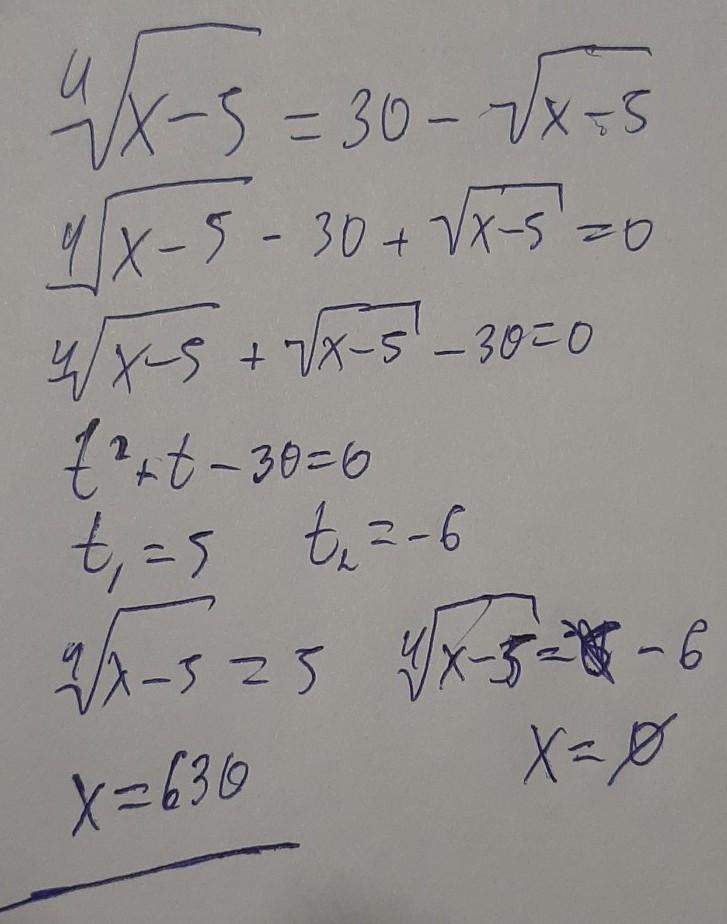 ∜(x-5) = 30 - √(x-5)
∜(x-5) - 30 + √(x-5) = 0
∜(x-5) + √(x-5) - 30 = 0
t² + t - 30 = 0
t₁ = 5 t₂ = -6
∜(x-5) = 5 ∜(x-5) = -6
x = 630 x = ∅